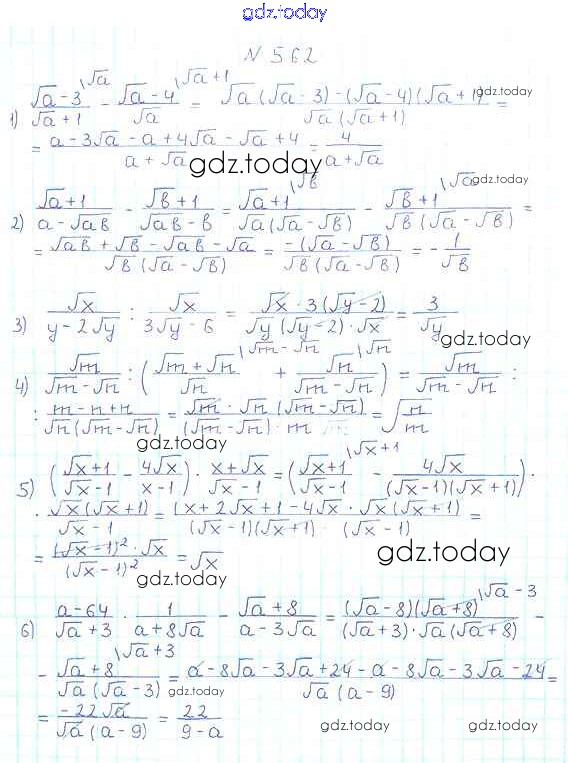 gdz.today
N 562
1) (√a-3)/(√a+1) |√a - (√a-4)/√a |√a+1 = (√a(√a-3)-(√a-4)(√a+1))/(√a(√a+1)) = gdz.today
= (a-3√a-a+4√a-√a+4)/(a+√a) = 4/(a+√a) gdz.today
2) (√a+1)/(a-√ab) - (√b+1)/(√ab-b) = (√a+1)/(√a(√a-√b)) |√b - (√b+1)/(√b(√a-√b)) |√a = gdz.today
= (√ab+√b-√ab-√a)/(√b(√a-√b)) = (-(√a-√b))/(√b(√a-√b)) = -1/√b
3) √x/(y-2√y) : √x/(3√y-6) = (√x·3(√y-2))/(√y(√y-2)·√x) = 3/√y gdz.today
4) √m/(√m-√n) : ((√m+√n)/√n |√m-√n + √n/(√m-√n) |√n) = √m/(√m-√n) :
: (m-n+n)/(√n(√m-√n)) = (√m·√n(√m-√n))/((√m-√n)·m) = √(n/m) gdz.today
5) ((√x+1)/(√x-1) - 4√x/(x-1)) · (x+√x)/(√x-1) = ((√x+1)/(√x-1) |√x+1 - 4√x/((√x-1)(√x+1))) ·
· (√x(√x+1))/(√x-1) = ((x+2√x+1-4√x)·√x(√x+1))/((√x-1)(√x+1)(√x-1)) =
= ((√x-1)²·√x)/(√x-1)² = √x gdz.today gdz.today
6) (a-64)/(√a+3) · 1/(a+8√a) - (√a+8)/(a-3√a) = ((√a-8)(√a+8))/((√a+3)·√a(√a+8)) |√a-3 -
- (√a+8)/(√a(√a-3)) |√a+3 = (a-8√a-3√a+24-a-8√a-3√a-24)/(√a(a-9)) = gdz.today
= (-22√a)/(√a(a-9)) = 22/(9-a) gdz.today gdz.today